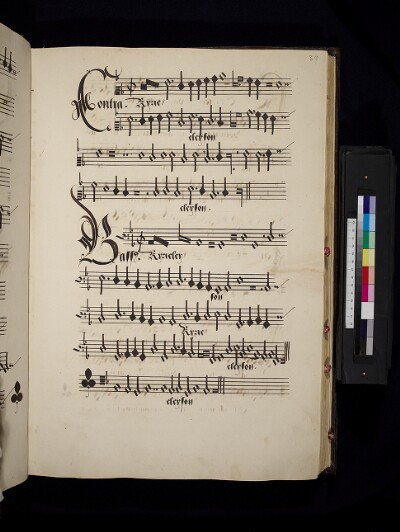 Contra. Kyrie
eleyson
eleyson.
Bass9. Kyrieley
son
Kyrie
eleyson.
eleyson